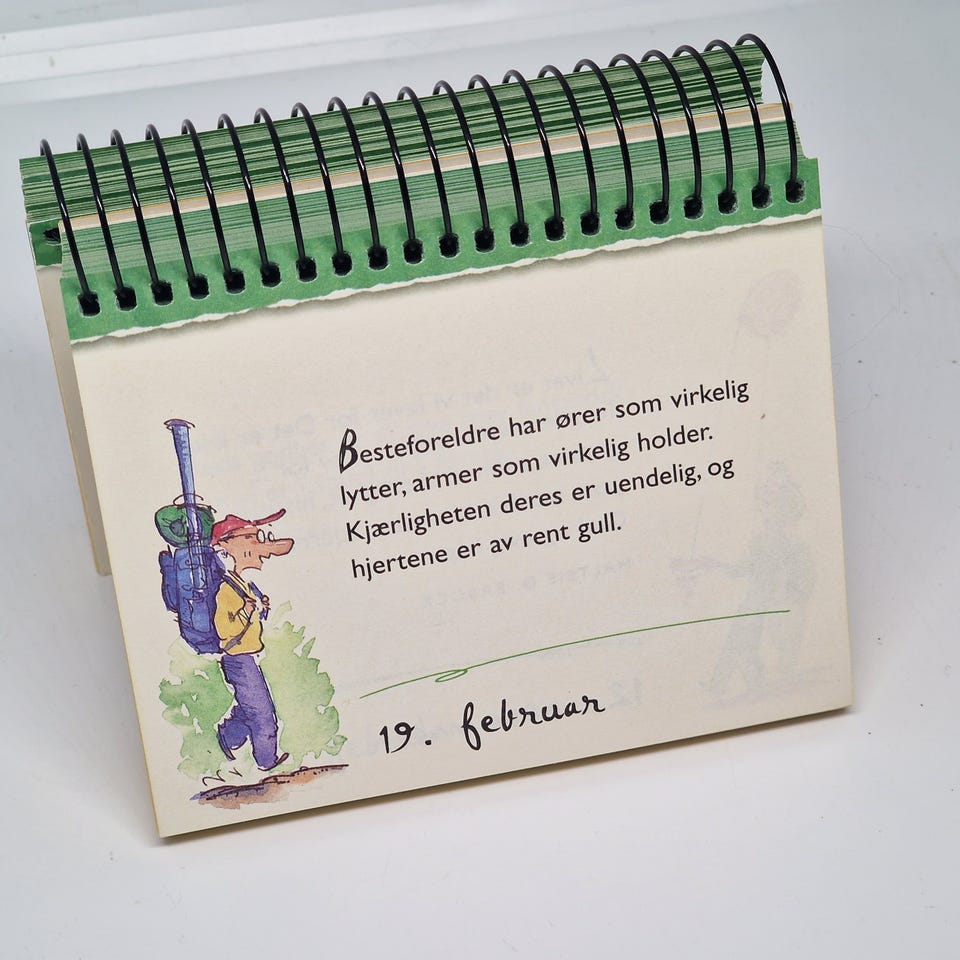 Besteforeldre har ører som virkelig
lytter, armer som virkelig holder.
Kjærligheten deres er uendelig, og
hjertene er av rent gull.
19. februar